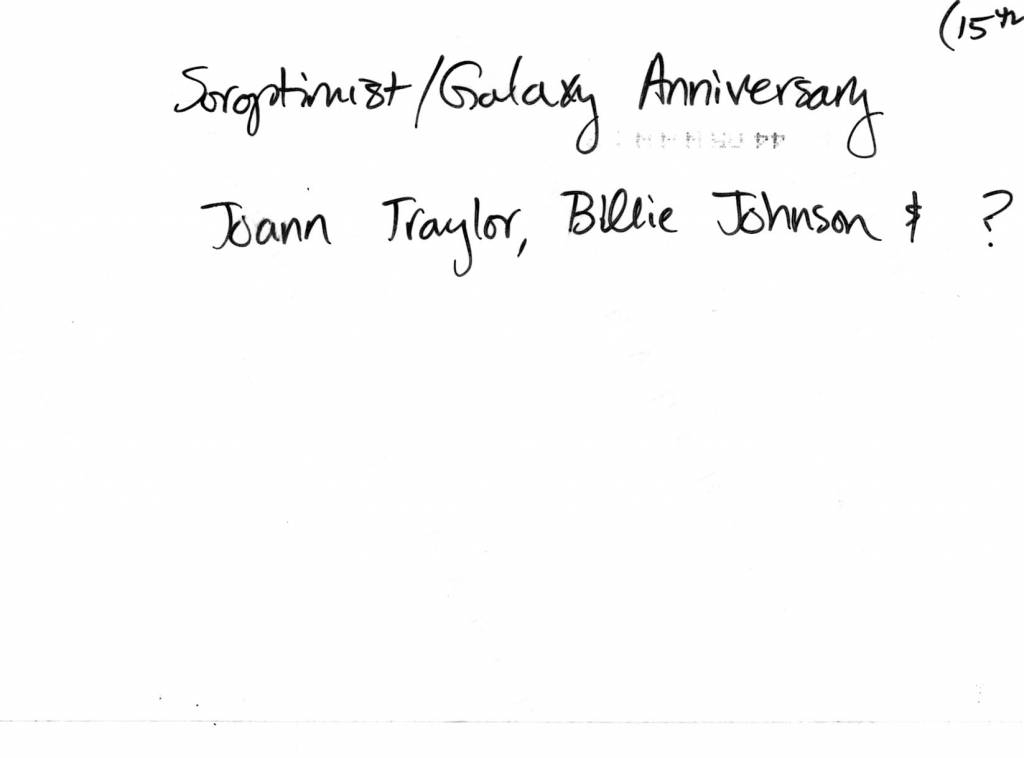 (15th
Soroptimist/Galaxy Anniversary
Joann Traylor, Billie Johnson & ?